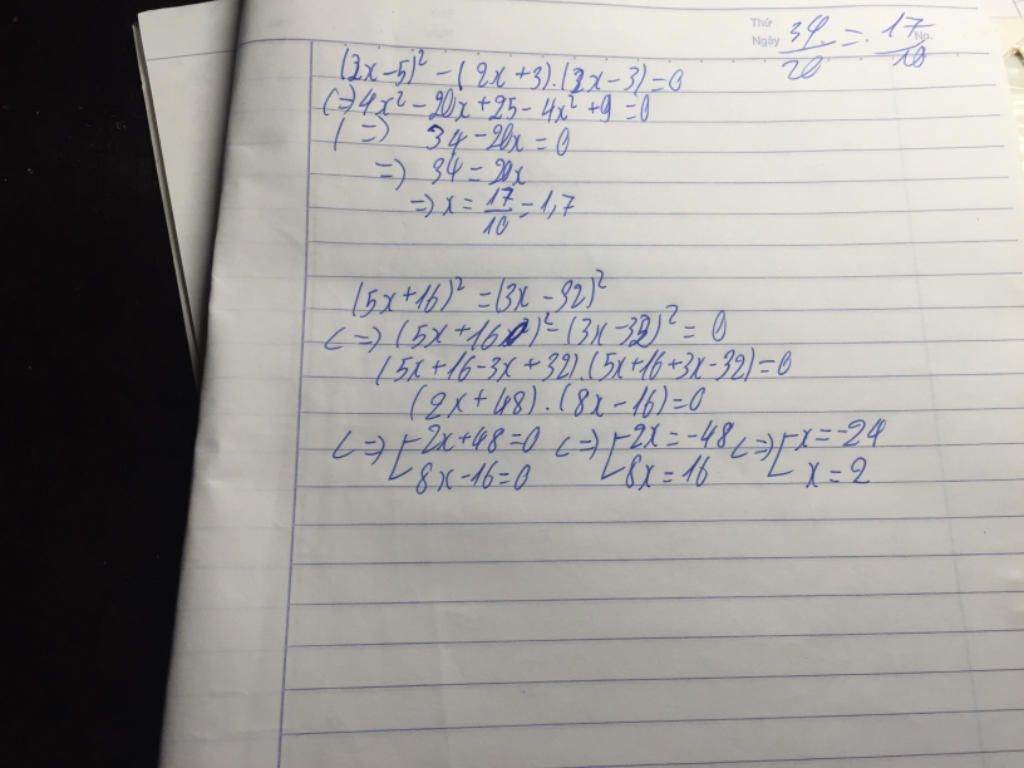 Thứ
Ngày 34/20 = 17/10 No.
(2x-5)² - (2x+3).(2x-3)=0
(=) 4x² - 20x+25 - 4x² +9 =0
(=) 34-20x = 0
=) 34 = 20x
=) x = 17/10 = 1,7
(5x+16)² = (3x-32)²
(=) (5x+16)² - (3x-32)² = 0
(5x+16-3x+32).(5x+16+3x-32)=0
(2x+48).(8x-16)=0
(=) [2x+48=0 (=) [2x=-48 (=) [x=-24
8x-16=0 8x=16 x=2